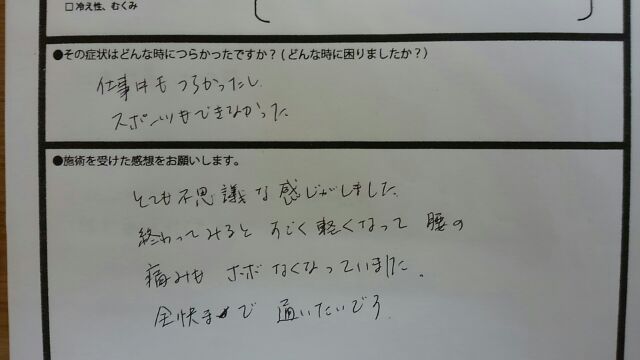 □ 冷え性、むくみ
●その症状はどんな時につらかったですか？(どんな時に困りましたか？)
仕事中もつらかったし
スポーツもできなかった
●施術を受けた感想をお願いします。
とても不思議な感じがしました。
終わってみると すごく軽くなって 腰の
痛みも ホボなくなっていました。
全快まで 通いたいです。